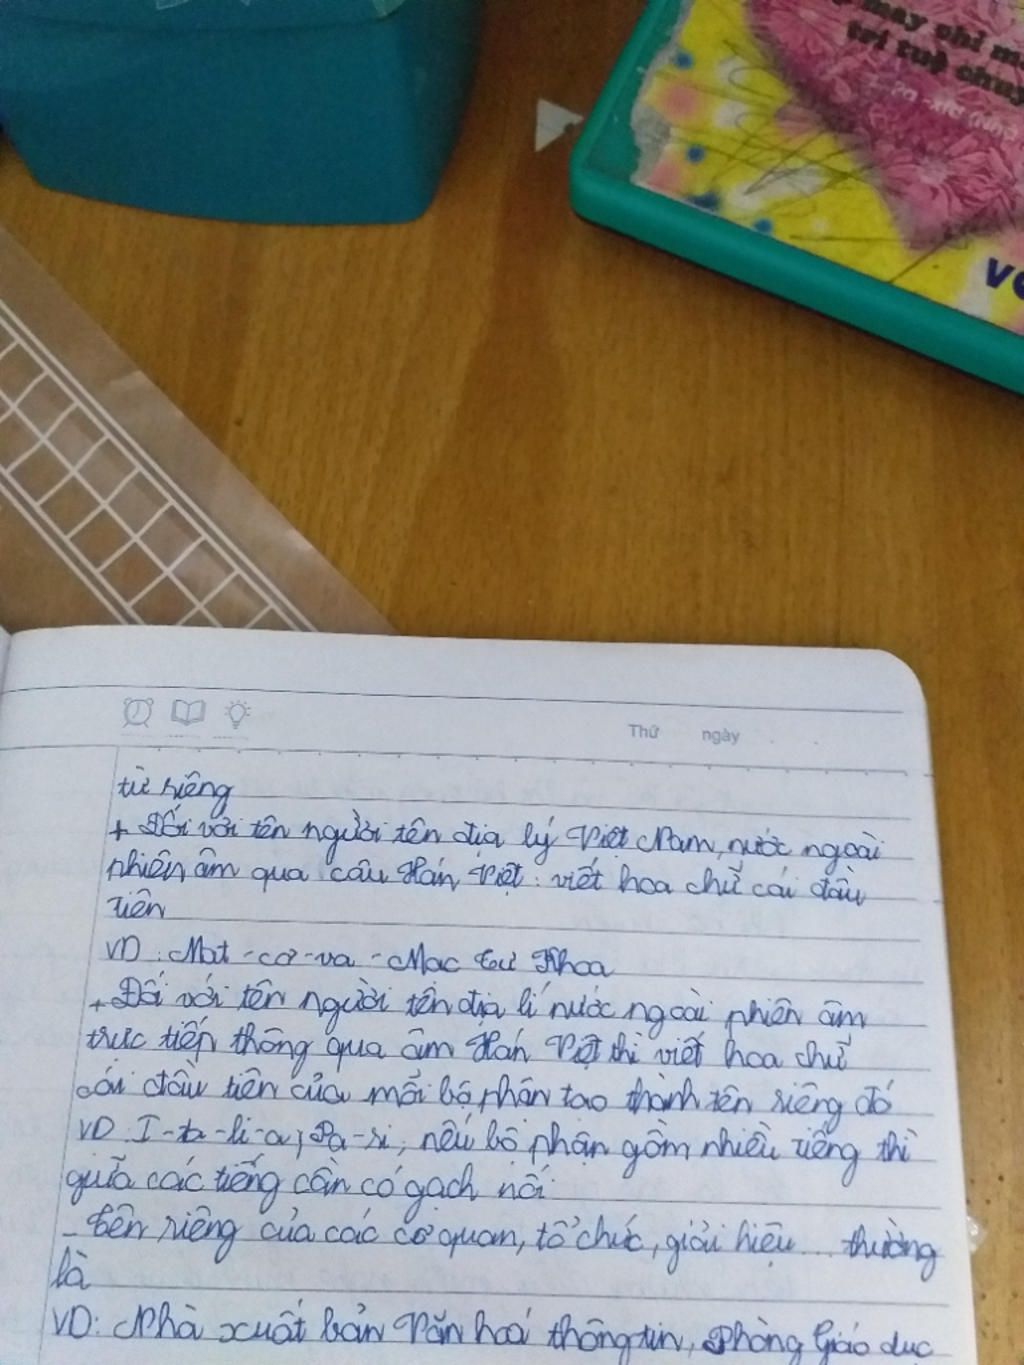 may chỉ m
trí tuệ chuy
Thứ ngày
từ riêng
+ Đối với tên người tên địa lý Việt Nam, nước ngoài
phiên âm qua câu Hán Việt : viết hoa chữ cái đầu
tiên
VD : Mat-cơ-va - Mac Tư Khoa
+ Đối với tên người tên địa lí nước ngoài phiên âm
trực tiếp thông qua âm Hán Việt thì viết hoa chữ
cái đầu tiên của mỗi bộ phận tạo thành tên riêng đó
VD : I-ta-li-a, Pa-ri, nếu bộ phận gồm nhiều tiếng thì
giữa các tiếng cần có gạch nối
- Tên riêng của các cơ quan, tổ chức, giải hiệu ... thường
là
VD: Nhà xuất bản Văn hoá thông tin, Phòng Giáo dục